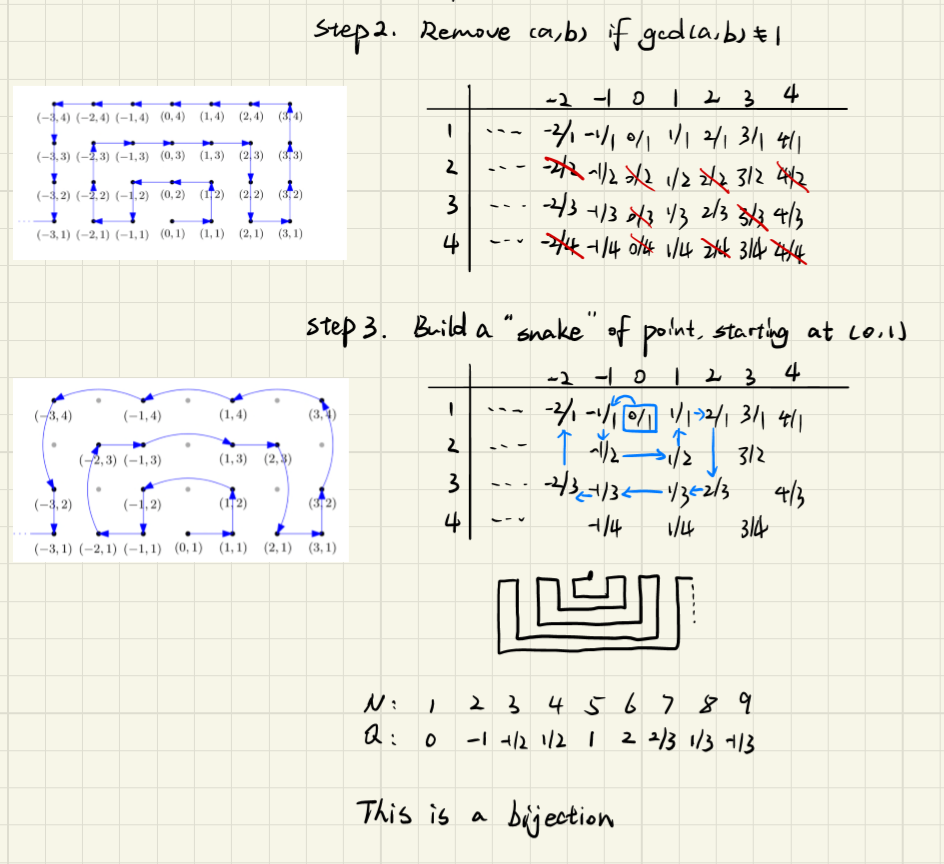 Step 2. Remove (a,b) if gcd(a,b) ≠ 1
(-3, 4) (-2, 4) (-1, 4) (0, 4) (1, 4) (2, 4) (3, 4)
(-3, 3) (-2, 3) (-1, 3) (0, 3) (1, 3) (2, 3) (3, 3)
(-3, 2) (-2, 2) (-1, 2) (0, 2) (1, 2) (2, 2) (3, 2)
(-3, 1) (-2, 1) (-1, 1) (0, 1) (1, 1) (2, 1) (3, 1)
-2 -1 0 1 2 3 4
1 --- -2/1 -1/1 0/1 1/1 2/1 3/1 4/1
2 --- -2/2 -1/2 0/2 1/2 2/2 3/2 4/2
3 --- -2/3 -1/3 0/3 1/3 2/3 3/3 4/3
4 --- -2/4 -1/4 0/4 1/4 2/4 3/4 4/4
Step 3. Build a "snake" of point, starting at (0,1)
(-3, 4) (-1, 4) (1, 4) (3, 4)
(-2, 3) (-1, 3) (1, 3) (2, 3)
(-3, 2) (-1, 2) (1, 2) (3, 2)
(-3, 1) (-2, 1) (-1, 1) (0, 1) (1, 1) (2, 1) (3, 1)
-2 -1 0 1 2 3 4
1 --- -2/1 -1/1 0/1 1/1 2/1 3/1 4/1
2 --- -1/2 1/2 3/2
3 --- -2/3 -1/3 1/3 2/3 4/3
4 --- -1/4 1/4 3/4
N: 1 2 3 4 5 6 7 8 9
Q: 0 -1 -1/2 1/2 1 2 2/3 1/3 -1/3
This is a bijection